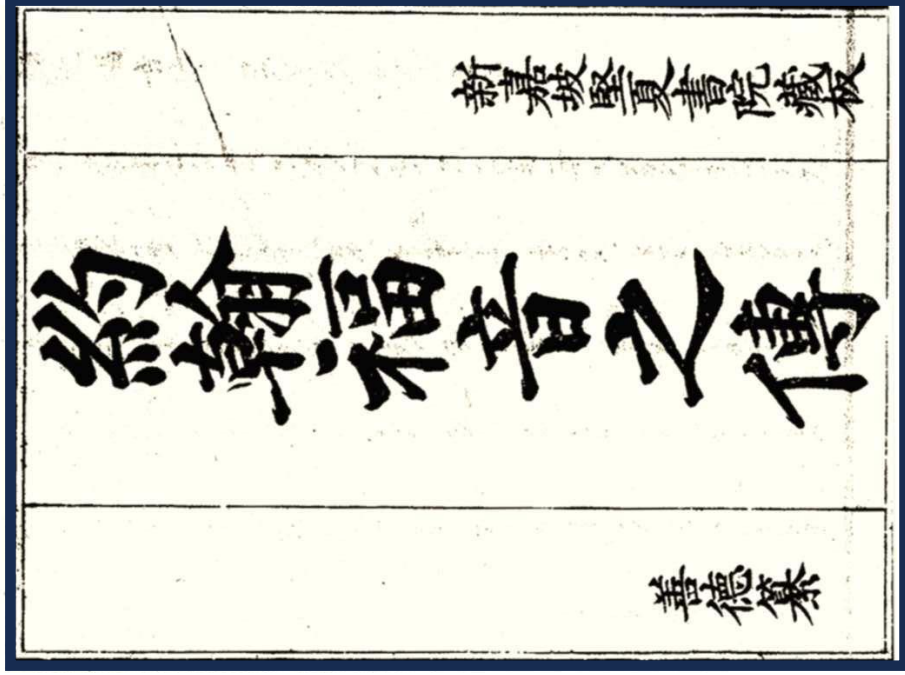 新嘉坡堅夏書院藏板
約翰福音之傳
善德纂